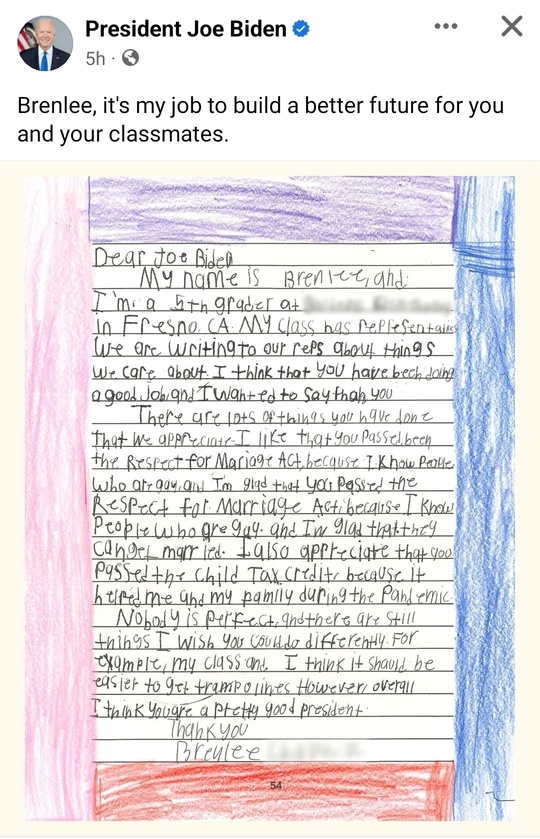 President Joe Biden
5h ·
Brenlee, it's my job to build a better future for you
and your classmates.
Dear Joe Biden
My name is Brenlee, and
I'm a 5th grader at
in Fresno. CA. My class has representaives
We are writing to our reps about things
We care about. I think that you have been doing
a good job, and I wanted to say thah you
There are lots of things you have done
that we appreciate. I like that you passed been
the Respect for Mariage Act, because I know People
who are gay, and I'm glad that you passed the
Respect for Marriage Act. because I know
People who are gay. and I'm glad that they
can get married. I also appreciate that you
passed the Child Tax credit, because it
helped me and my pamily during the Pandemic.
Nobody is perfect, and there are still
things I wish you could do differently. For
example, my class and I think it should be
easier to get trampolines However, overall
I think you are a pretty good president.
Thank you
Brenlee
54